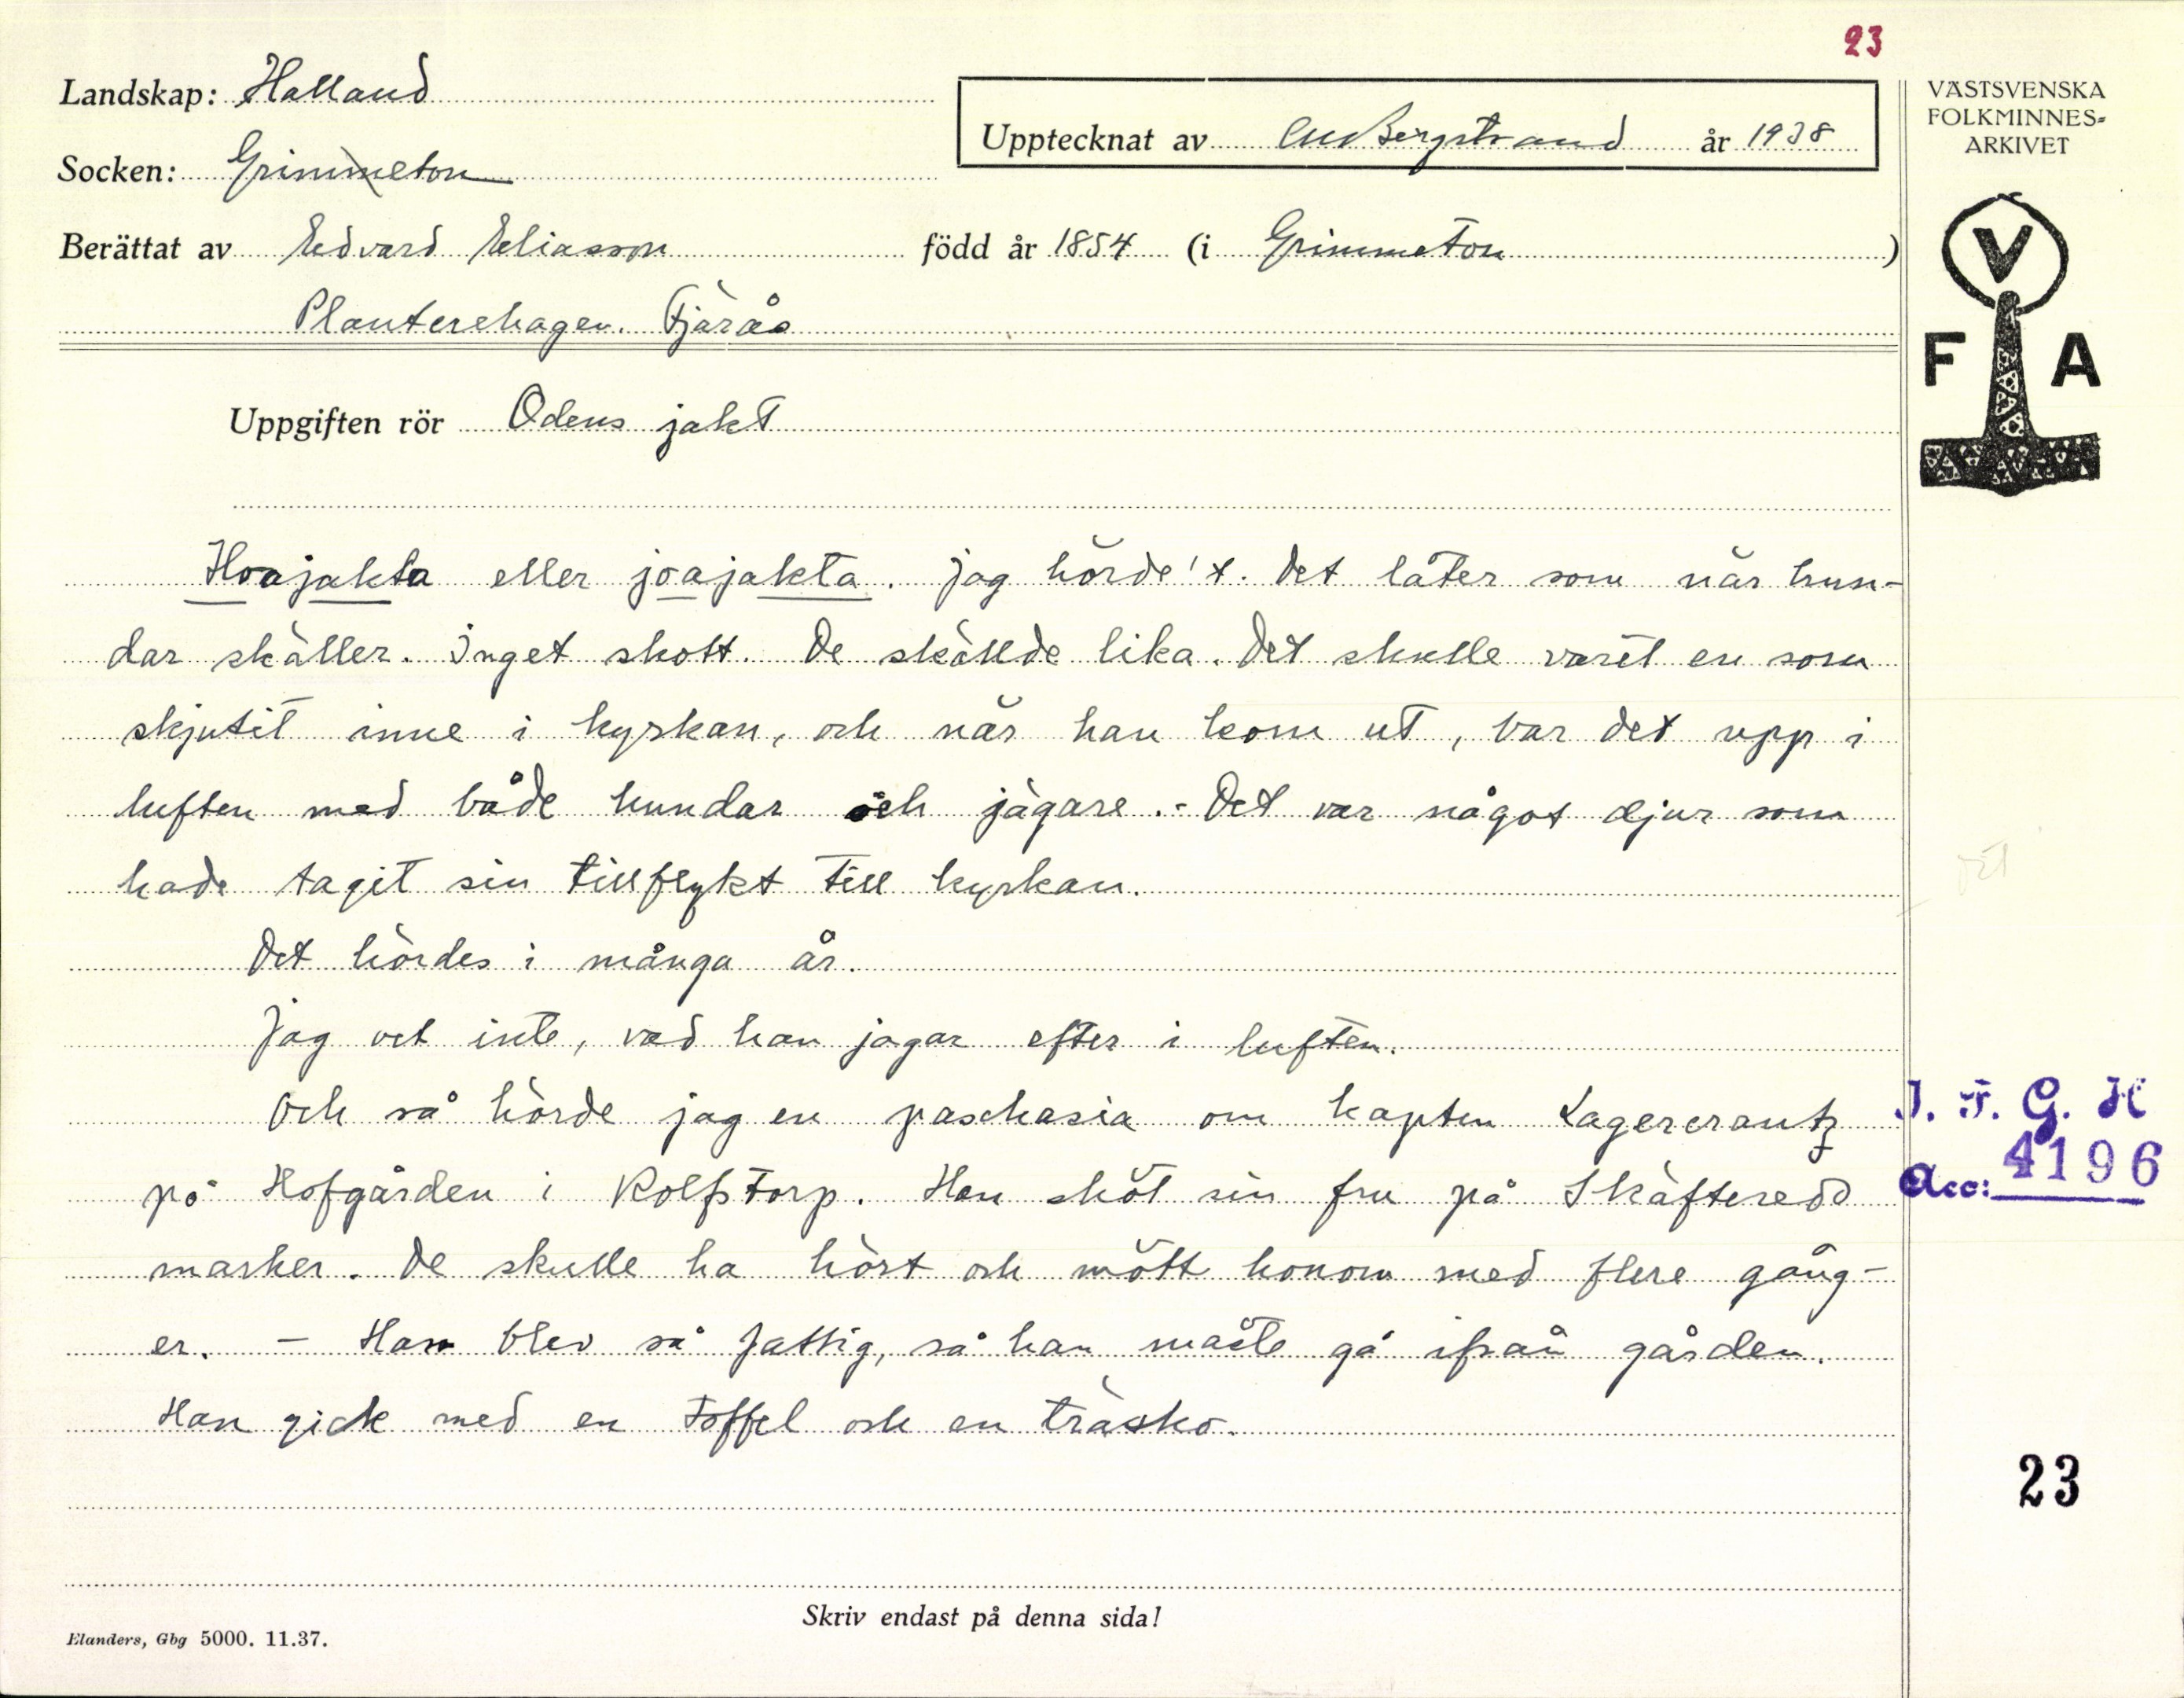 23
Landskap: Halland
VÄSTSVENSKA
FOLKMINNES-
ARKIVET
Upptecknat av CM Bergstrand år 1938
Socken: Grimmeton
Berättat av Edvard Eliasson född år 1854 (i Grimmeton)
Planterehagen. Fjärås
V
F A
Uppgiften rör Odens jakt
Hoajakta eller joajakta. Jag hörde't. Det låter som när hun-
dar skäller. Inget skott. De skällde lika. Det skulle varit en som
skjutit inne i kyrkan, och när han kom ut, bar det upp i
luften med både hundar och jägare. - Det var något djur som
hade tagit sin tillflykt till kyrkan.
Det hördes i många år.
Jag vet inte, vad han jagar efter i luften.
Och så hörde jag en paschasia om kapten Lagercrantz
på Hofgården i Rolfstorp. Han sköt sin fru på Skäfteredd
marker. De skulle ha hört och mött honom med flere gång-
er. - Han blev så fattig, så han måste gå ifrån gården.
Han gick med en toffel och en träsko.
I. F. G. H
Acc: 4196
23
Skriv endast på denna sida!
Elanders, Gbg 5000. 11.37.